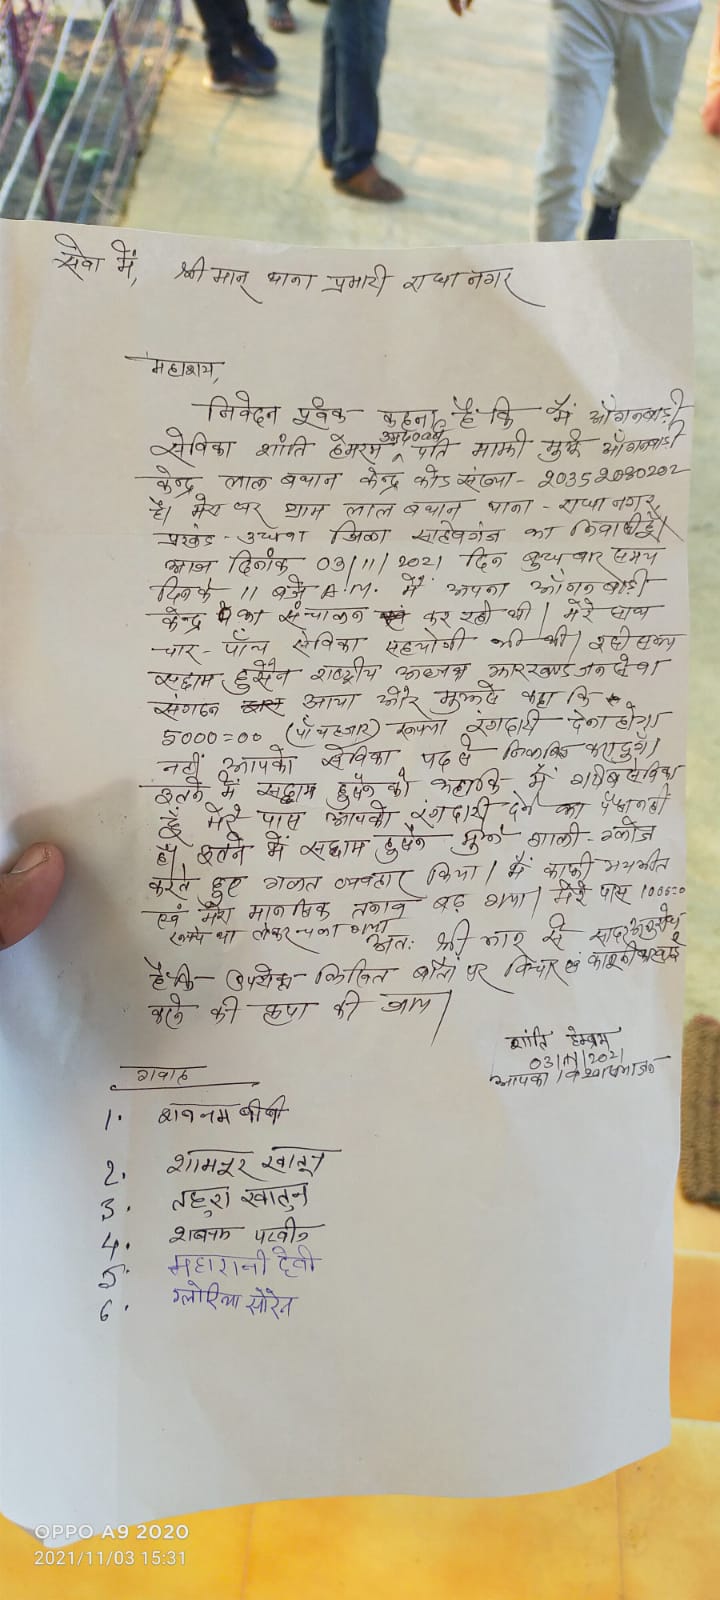 सेवा में, श्री मान् थाना प्रभारी राधा नगर
महाशय,
निवेदन पूर्वक कहना है कि मैं आँगनबाड़ी
सेविका शांति हेम्ब्रम पति माझी मुर्मू आँगनबाड़ी
केन्द्र लाल बथान केन्द्र कोड संख्या - 20352030202
है। मेरा घर ग्राम लाल बथान थाना - राधा नगर
प्रखंड - उधवा जिला साहेबगंज का निवासी हूँ।
आज दिनांक 03/11/2021 दिन बुधवार समय
दिन के 11 बजे A.M. में अपना आँगनबाड़ी
केन्द्र का संचालन कर रही थी। मेरे साथ
चार - पाँच सेविका सहयोगी भी थी। इसी समय
सद्दाम हुसैन राष्ट्रीय अध्यक्ष झारखण्ड जन सेवा
संगठन आया और मुझसे कहा कि
5000=00 (पाँच हजार) रूपया रंगदारी देना होगा।
नहीं आपको सेविका पद से निकासित करा दुगाँ।
इतने में सद्दाम हुसैन को कहा कि मैं गरीब सेविका
हूँ मेरे पास आपको रंगदारी देने का पैसा नही
है। इतने में सद्दाम हुसैन मुझे गाली - ग्लोज
करते हुए गलत व्यवहार किया। मैं काफी भयभीत
एवं मेरा मानसिक तनाव बढ़ गया। मेरे पास 1000=0
रूपये था लेकर चला गया
अतः श्री मान से सादर अनुरोध
है कि उपरोक्त लिखित बातों पर विचार एवं कानूनी कारवाई
करने की कृपा की जाय।
शांति हेम्ब्रम
03/11/2021
आपका विश्वासभाजन
गवाह
1. शबनम बीबी
2. शामनूर खातून
3. तहुरा खातुन
4. शबनम परवीन
5. महारानी देवी
6. ग्लोरिया सोरेन
OPPO A9 2020
2021/11/03 15:31